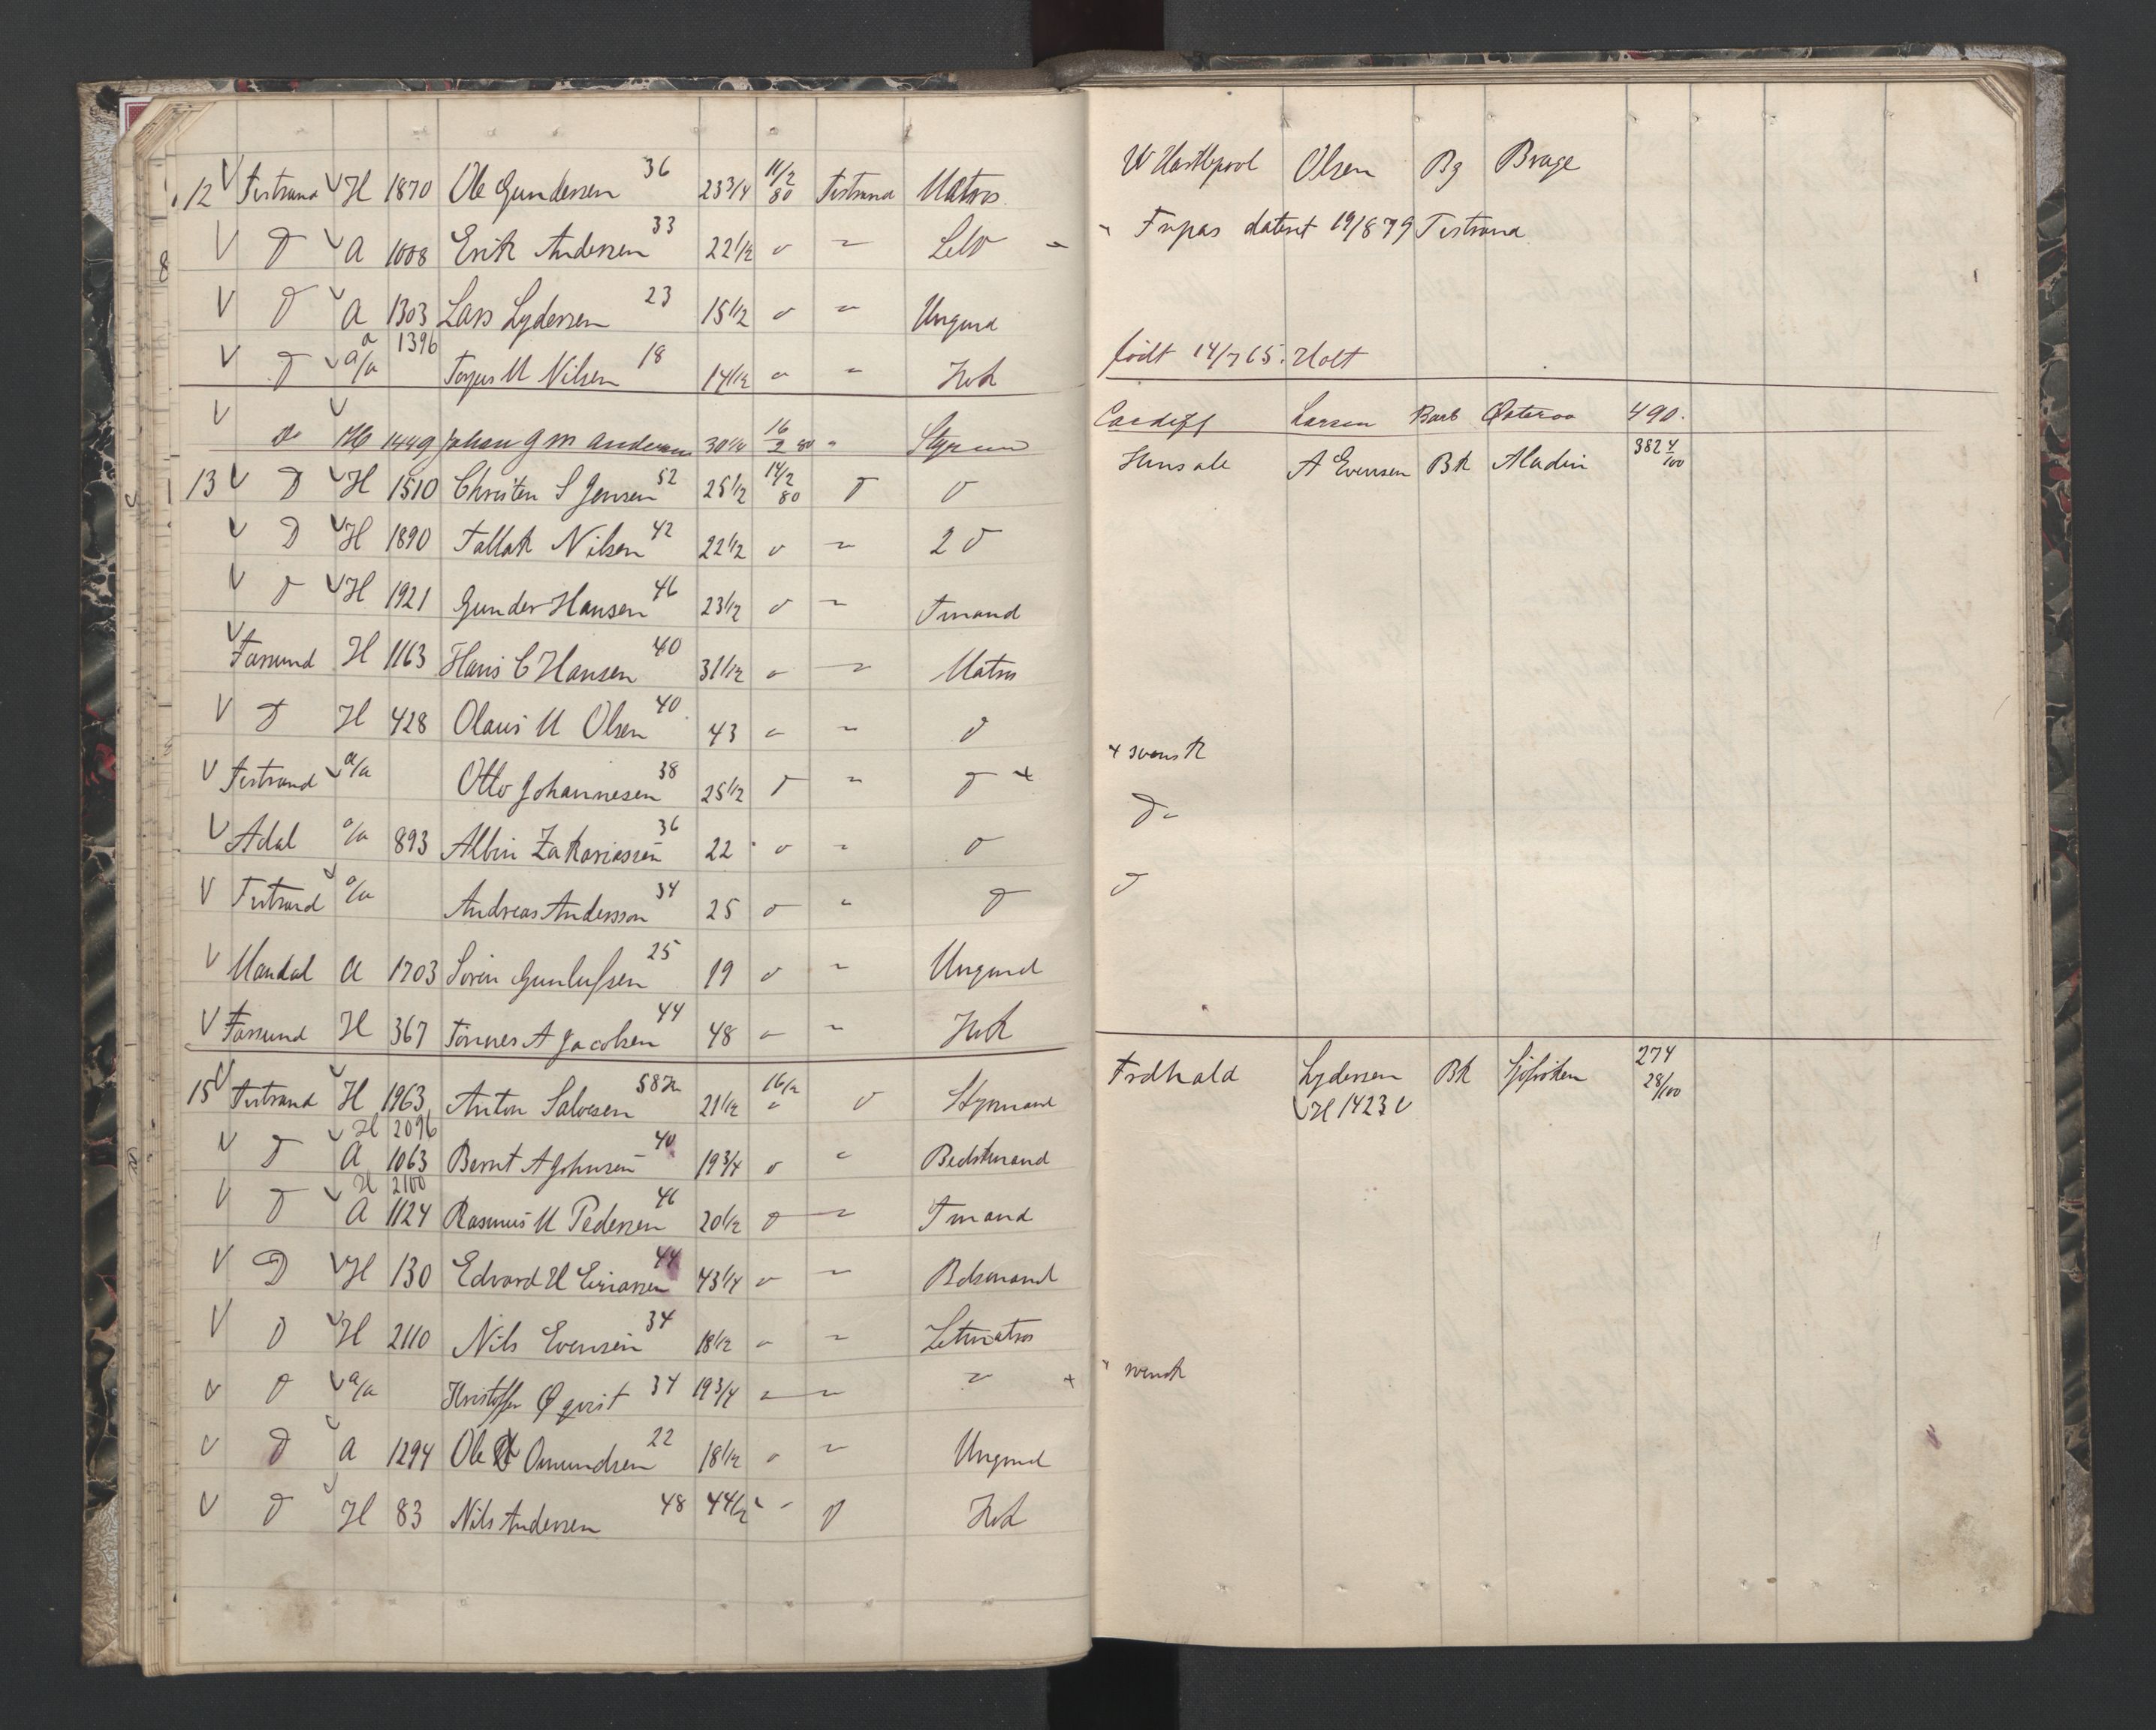 12 V Tvstrand V H 1870 Ole Gundersen 36 23 3/4 11/2 80 Tvstrand Matros W Hartlepool Olsen Bg Brage
V D V A 1008 Erik Andersen 33 22 1/2 " " Fripas dateret 19/8 79 Tvstrand
V D V A 1303 Lars Lydersen 23 15 1/2 " " Ungmd
V D V a/a 1396 Torjus M Nilsen 18 14 1/2 " " Kok født 14/7 65. Holt
V Do V H 1449 Johan G M Andersen 30 1/4 16/2 80 " Styrmd Cardiff Larsen Bark Østerøo 490.
13 V D V H 1510 Christen S Jensen 52 25 1/2 14/2 80 D D A Evensen Bk Aladin 382 4/100
V D V H 1890 Tallak Nilsen 42 22 1/2 " " 2 D
V D V H 1921 Gunder Hansen 46 23 1/2 " " Tmand
V Farsund H 1163 Hans C Hansen 40 31 1/2 " " Matros
V D H 428 Olaus M Olsen 40 43 " " D
V Tvstrand V a/a Otto Johannesen 38 25 1/2 D " D + + svensk
V Adal a/a 893 Albin Zakariassen 36 22 " " D Do
V Tvstrand V a/a Andreas Andersson 34 25 D " D D
V Mandal A 1703 Sørin Gunlufsen 25 19 " " Ungmd
V Farsund H 367 Tønnes A Jacobsen 44 48 " " Kok
15 V Tvstrand V H 1963 Anton Salvesen 58 Kr 21 1/2 16/2 " D Styrmand Frdhald Lydersen Bk 274 28/100
V H 1423 V
V D V H 2096
A 1063 Bernt A Johnsen 40 19 3/4 D " Bedstmand
V D V H 2100
A 1124 Rasmus M Pedersen 46 20 1/2 D " Tmand
V D V H 130 Edvard 44 43 1/4 " " Bdsmand
V D V H 2110 Nils Evensen 34 18 1/2 " " Letmatros
V D V a/a Kristoffer Øqvist 34 19 3/4 " " " + + svensk
V D V A 1294 Ole Omundsen 22 18 1/2 " " Ungmd
V D V H 83 Nils Andersen 48 44 1/2 " D Kok